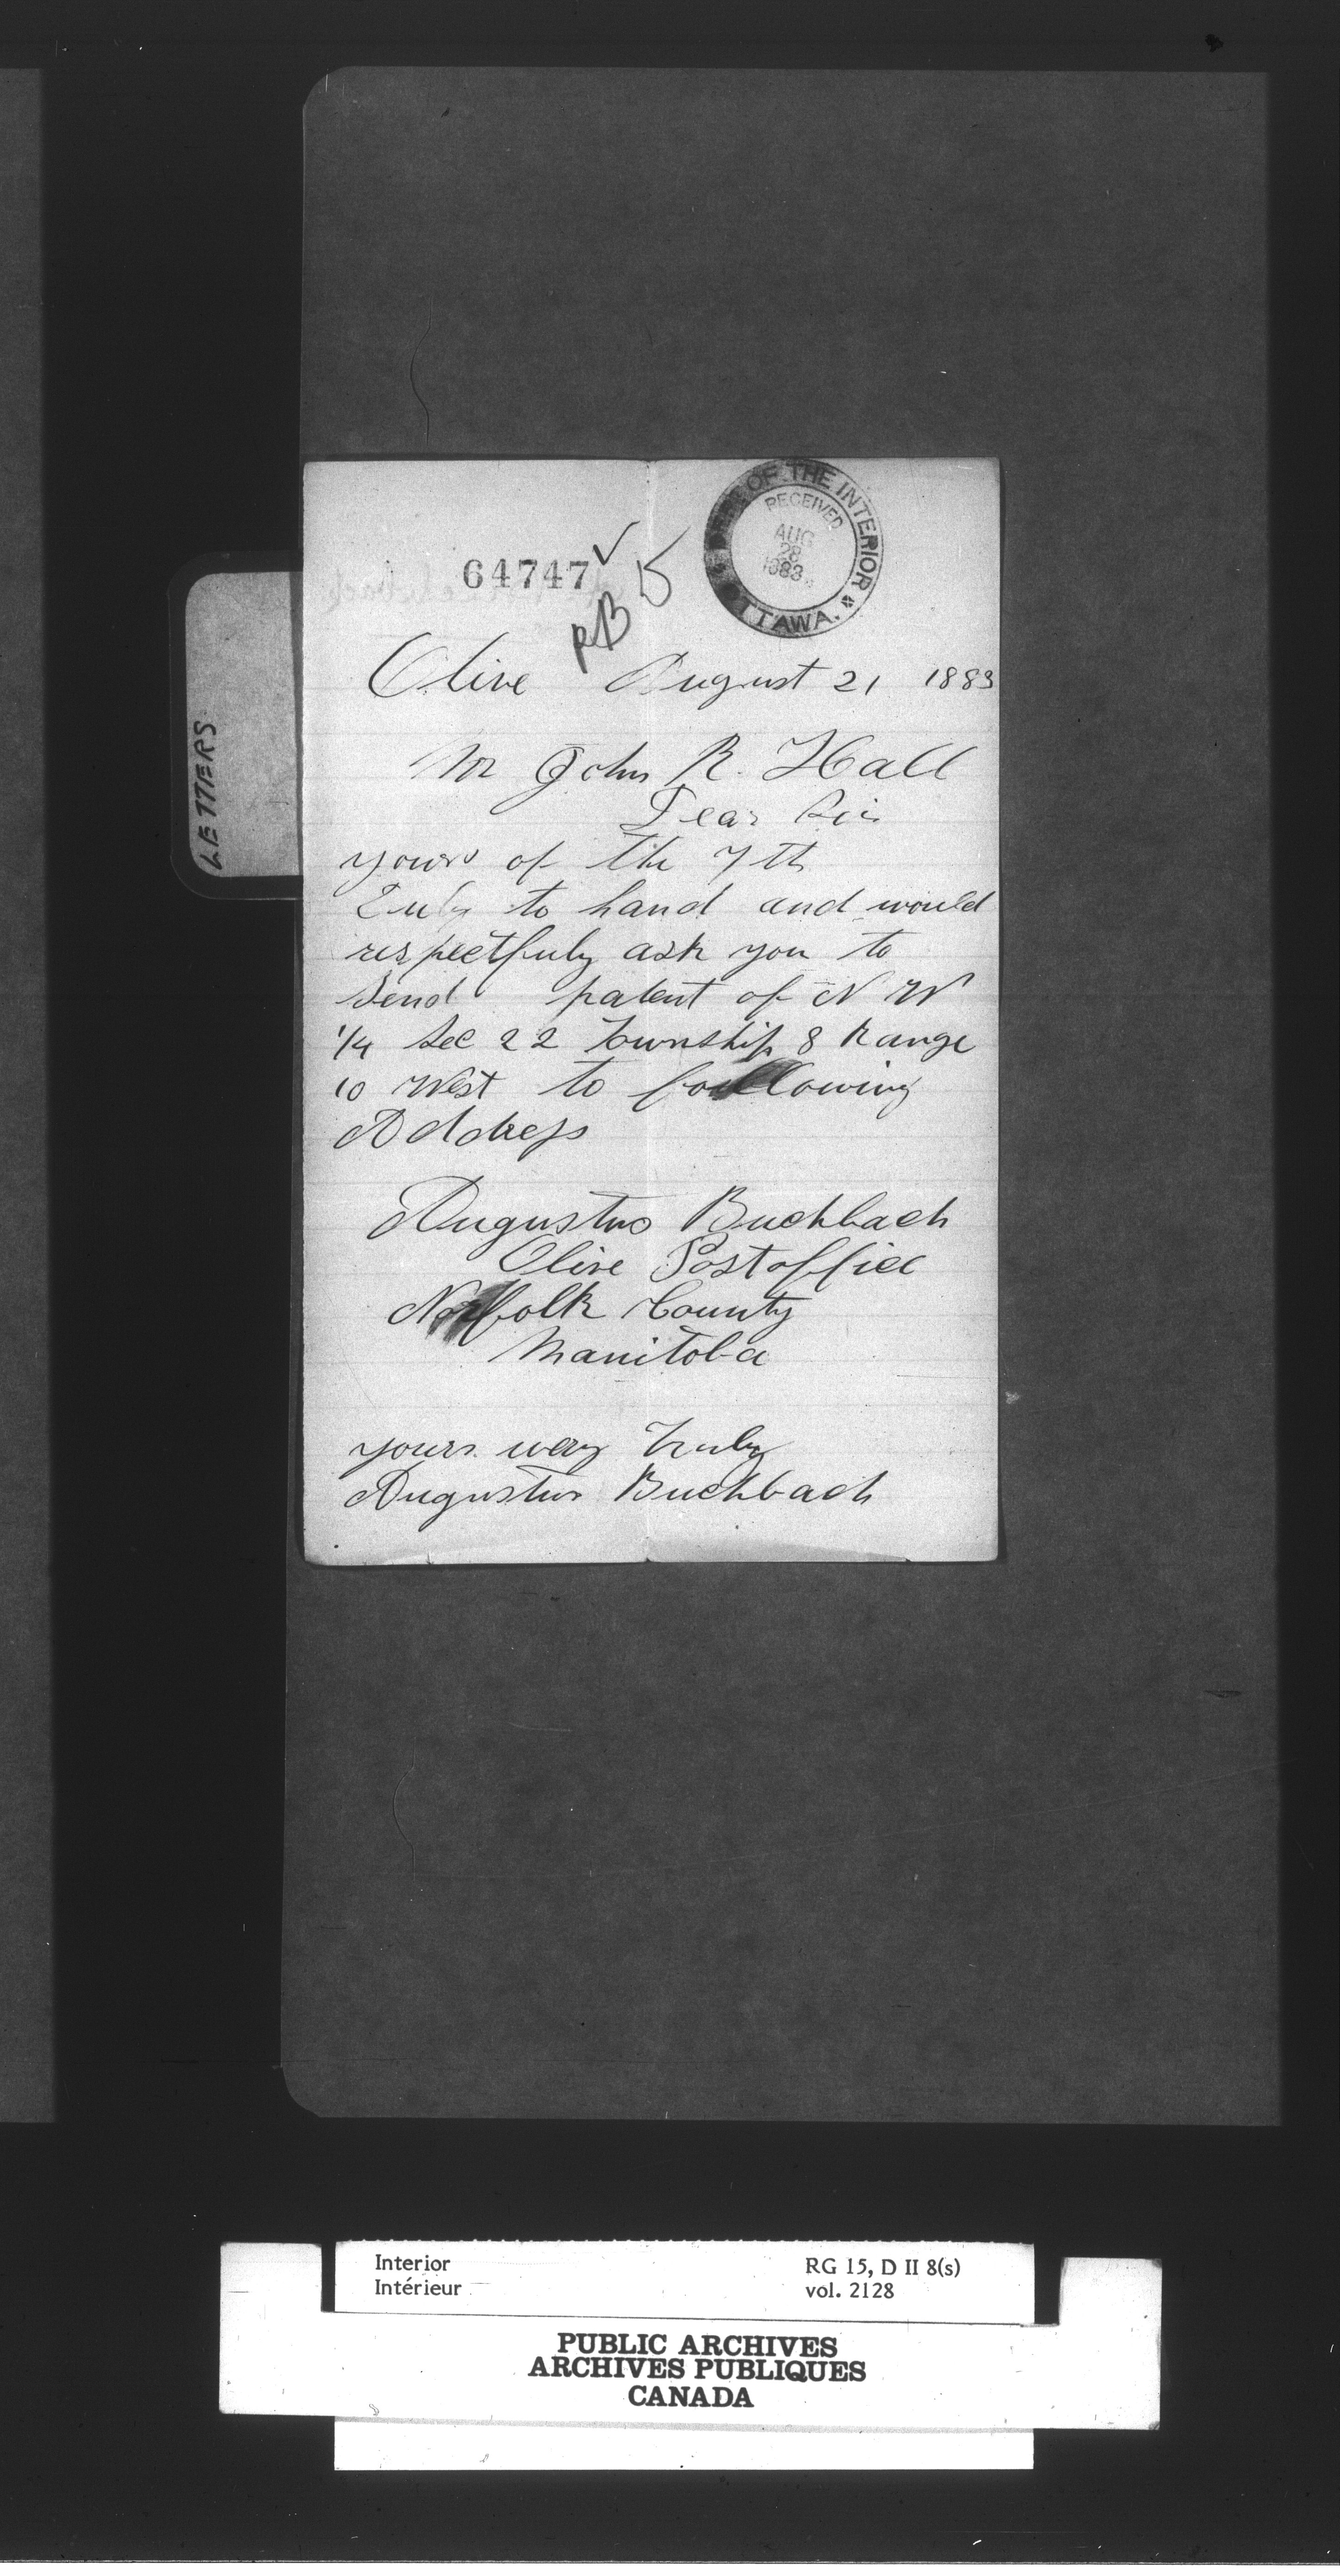 LETTERS
64747
DEPT OF THE INTERIOR
RECEIVED
AUG
28
1883
OTTAWA.
RB
Olive August 21 1883
Mr John R. Hall
Dear Sir
yours of the 7th
July to hand and would
respectfuly ask you to
Send patent of N W
1/4 Sec 22 Township 8 Range
10 West to following
Address
Augustus Buckbach
Olive Postoffice
Norfolk County
Manitoba
yours very truly
Augustus Buckbach
Interior
Intérieur
RG 15, D II 8(s)
vol. 2128
PUBLIC ARCHIVES
ARCHIVES PUBLIQUES
CANADA